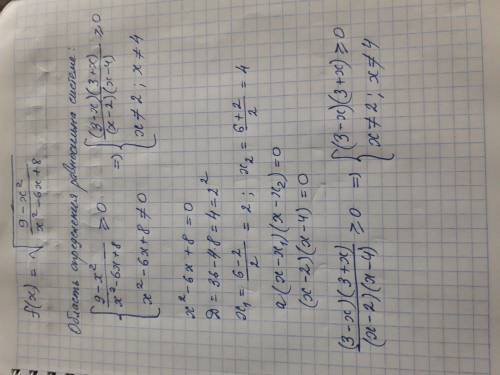 f(x) = √((9-x²)/(x²-6x+8))
Область определения равносильна системе:
{ (9-x²)/(x²-6x+8) ≥ 0 ; x²-6x+8 ≠ 0 => { (3-x)(3+x)/((x-2)(x-4)) ≥ 0 ; x ≠ 2 ; x ≠ 4
x²-6x+8 = 0
D = 36-4·8 = 4 = 2²
x₁ = (6-2)/2 = 2 ; x₂ = (6+2)/2 = 4
a(x-x₁)(x-x₂) = 0
(x-2)(x-4) = 0
(3-x)(3+x)/((x-2)(x-4)) ≥ 0 => { (3-x)(3+x) ≥ 0 ; x ≠ 2 ; x ≠ 4